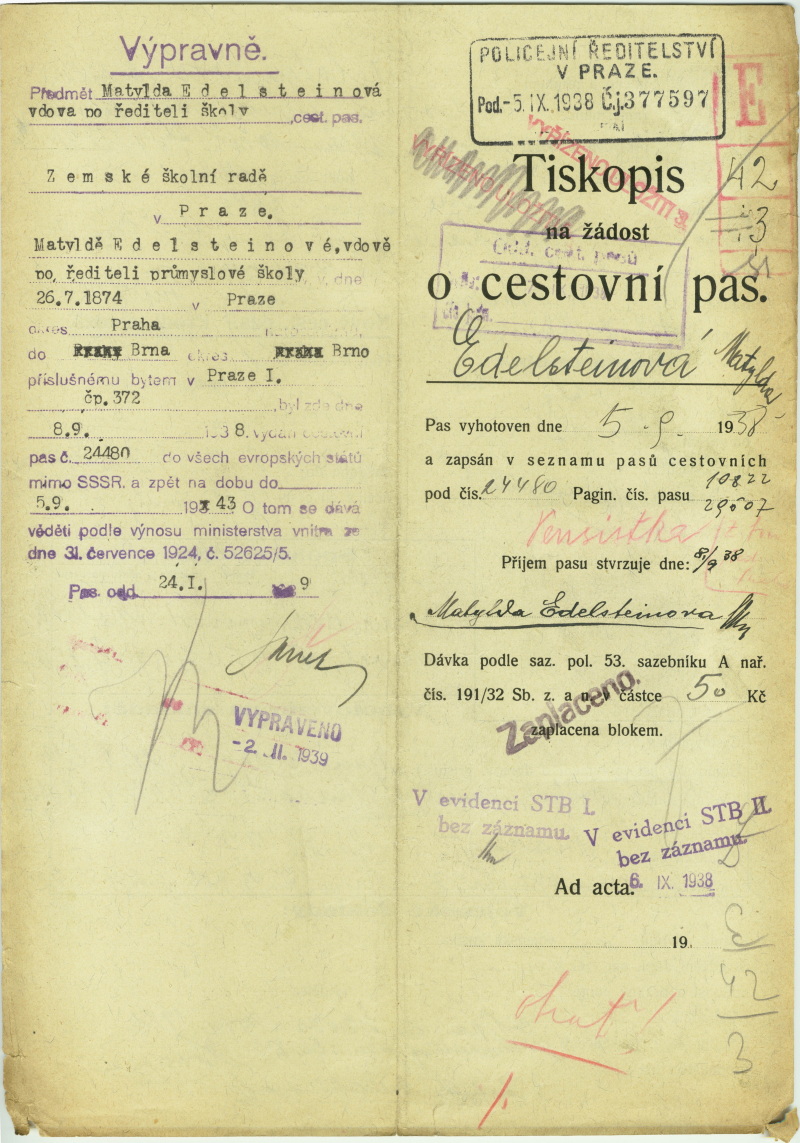 Výpravně.
Předmět Matylda Edelsteinová
vdova po řediteli školy cest. pas.
Zemské školní radě
v Praze.
Matyldě Edelsteinové, vdově
po, řediteli průmyslové školy dne
26.7.1874 v Praze
okres Praha
do Brna okres Brno
příslušnému bytem v Praze I.
čp. 372 byl zde dne
8.9. 1938. vydán cestovní
pas č. 24480 do všech evropských států
mimo SSSR. a zpět na dobu do
5.9. 1943 O tom se dává
věděti podle výnosu ministerstva vnitra ze
dne 31. července 1924, č. 52625/5.
Pas odd. 24.I. 9
VYPRAVENO
-2. II. 1939
POLICEJNÍ ŘEDITELSTVÍ
V PRAZE.
Pod. -5.IX.1938 Čj. 377597
E
42
3
VYŘÍZENO ULOŽITI
Tiskopis
na žádost
o cestovní pas.
Edelsteinová Matylda
Pas vyhotoven dne 5. 9. 1938
a zapsán v seznamu pasů cestovních
pod čís. 24480 Pagin. čís. pasu
Příjem pasu stvrzuje dne: 8/9 38
Matylda Edelsteinova
Dávka podle saz. pol. 53. sazebníku A nař.
čís. 191/32 Sb. z. a n. v částce 50 Kč
zaplacena blokem.
Zaplaceno.
V evidenci STB I.
bez záznamu.
V evidenci STB II.
bez záznamu.
Ad acta.
6. IX. 1938
19
E
42
3